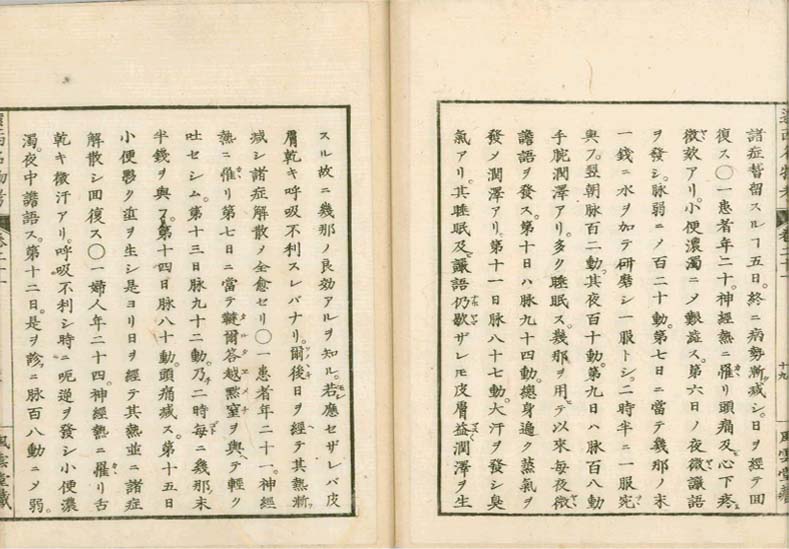 諸症暫留スルヿ五日。終ニ病勢漸減シ。日ヲ經テ囬
復ス〇一患者年二十。神經熱ニ罹リ頭痛及心下疼
微欬アリ。小便濃濁ニメ艱澁ス。第六日ノ夜微譫語
ヲ發シ。脉弱ニメ百二十動。第七日ニ當テ幾那ノ末
一錢ニ水ヲ加テ研磨シ一服トシ。二時半ニ一服完
與フ。翌朝脉百二動。其夜百十動。第九日ハ脉百八動
手腕潤澤アリ。多ク睡眠ス。幾那ヲ用テ以來每夜微
譫語ヲ發ス。第十日ハ脉九十四動。總身遍ク蒸氣ヲ
發メ潤澤アリ。第十一日脉八十七動。大汗ヲ發シ臭
氣アリ。其睡眠及譫語仍歇ザレモ皮膚益潤澤ヲ生
スル故ニ幾那ノ良効アルヲ知ル。若應セザレバ皮
膚乾キ呼吸不利スレバナリ。爾後日ヲ經テ其熱漸
減シ諸症解散メ全愈セリ〇一患者年二十一。神經
熱ニ罹リ第七日ニ當テ韃爾答越黙室ヲ與ヘテ輕ク
吐セシム。第十三日脉九十二動。乃二時每ニ幾那末
半錢ヲ與フ。第十四日脉八十動。頭痛减ス。第十五日
小便夥ク疸ヲ生シ是ヨリ日ヲ經テ其熱並ニ諸症
解散シ囬復ス〇一婦人年二十四。神經熱ニ罹リ舌
乾キ微汗アリ。呼吸不利シ時ニ呃逆ヲ發シ小便濃
濁。夜中譫語ス。第十二日。是ヲ診ニ脉百八動ニメ弱。
風雲堂藏